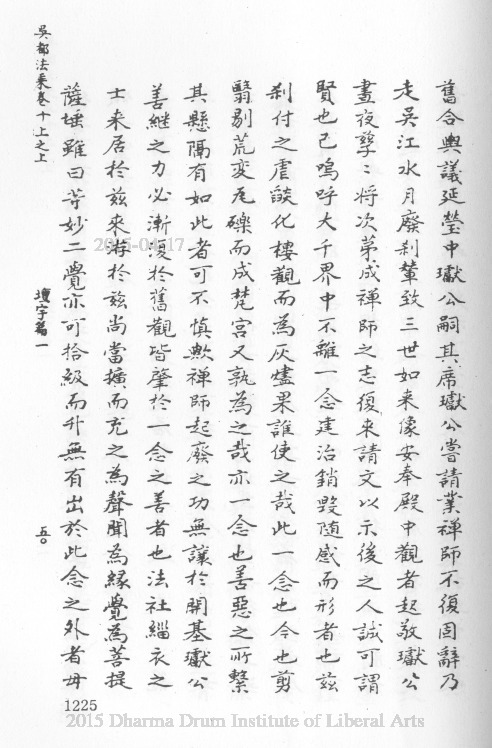 舊合輿議延瑩中瓛公嗣其席瓛公嘗請業禪師不復固辭乃
走吳江水月廢剎輦致三世如来像安奉殿中觀者起敬瓛公
晝夜孳〻將次苐成禅師之志復来請文以示後之人誠可謂
賢也已嗚呼大千界中不離一念建治銷毀随感而形者也兹
刹付之虐燄化樓觀而為灰燼果誰使之哉此一念也今也剪
翳剔荒変瓦礫而成梵宫又孰為之哉亦一念也善惡之所繫
其懸隔有如此者可不慎歟禅師起廢之功無讓於開基瓛公
善継之力必漸復於舊觀皆肇於一念之善者也法社緇衣之
士来居於兹來游於兹尚當擴而充之為聲聞為縁覺為菩提
薩埵雖曰等妙二覺亦可拾級而升無有出於此念之外者毋
吳都法乘卷十上之上
壇宇篇一
五〇
1225
2015-04-17
2015 Dharma Drum Institute of Liberal Arts